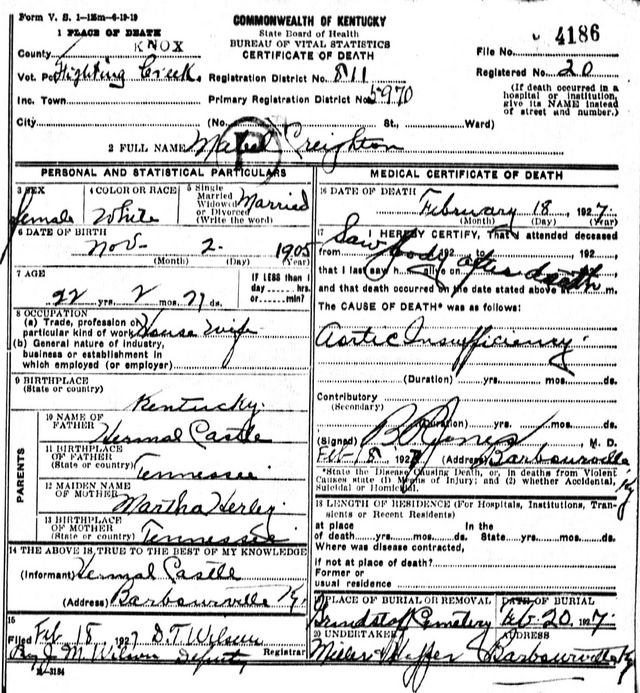 Form V. S. 1-1
COMMONWEALTH OF KENTUCKY
State Board of Health
BUREAU OF VITAL STATISTICS
CERTIFICATE OF DEATH
4186
File No.
Registered No. 20
(If death occurred in a hospital or institution, give its NAME instead of street and number.)
1 PLACE OF DEATH
County KNOX
Vot. Pct Fighting Creek.
Registration District No. 811
Inc. Town
Primary Registration District No. 5970
City (No. St., Ward)
2 FULL NAME Mabel Creighton
P
PERSONAL AND STATISTICAL PARTICULARS
3 SEX female
4 COLOR OR RACE White
5 Single Married Widowed or Divorced (Write the word) Married
6 DATE OF BIRTH
Nov- 2. 1905
(Month) (Day) (Year)
7 AGE
22 yrs. 2 mos. 21 ds.
IF LESS than 1 day hrs. or min?
8 OCCUPATION
(a) Trade, profession or particular kind of work House wife
(b) General nature of industry, business or establishment in which employed (or employer)
9 BIRTHPLACE
(State or country)
Kentucky.
PARENTS
10 NAME OF FATHER Hermal Castle
11 BIRTHPLACE OF FATHER (State or country) Tennessee
12 MAIDEN NAME OF MOTHER Martha
13 BIRTHPLACE OF MOTHER (State or country) Tennessee
14 THE ABOVE IS TRUE TO THE BEST OF MY KNOWLEDGE
(Informant) Hermal Castle
(Address) Barbourville Ky.
15
Filed Feb 18 1927 D. T. Wilson Registrar
By J. M. Wilson Deputy
MEDICAL CERTIFICATE OF DEATH
16 DATE OF DEATH
February 18, 1927.
(Month) (Day) (Year)
17 I HEREBY CERTIFY, That I attended deceased
from , 192 to , 192 ,
Saw body after death
that I last saw h alive on
and that death occurred on the date stated above at m.
The CAUSE OF DEATH* was as follows:
Aortic Insufficiency.
(Duration) yrs. mos. ds.
Contributory
(Secondary)
(Duration) yrs. mos. ds.
(Signed) Jones, M. D.
Feb 18 1927 (Address) Barbourville Ky
*State the Disease Causing Death, or, in deaths from Violent Causes state (1) Means of Injury; and (2) whether Accidental, Suicidal or Homicidal.
18 LENGTH OF RESIDENCE (For Hospitals, Institutions, Transients or Recent Residents)
at place of death yrs. mos. ds. In the State yrs. mos. ds.
Where was disease contracted,
if not at place of death?
Former or
usual residence
19 PLACE OF BURIAL OR REMOVAL
Cemetery
DATE OF BURIAL
Feb-20, 1927.
20 UNDERTAKER
ADDRESS
Barbourville Ky